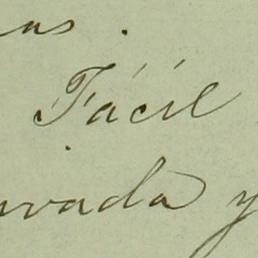 as.
Fácil
vada y